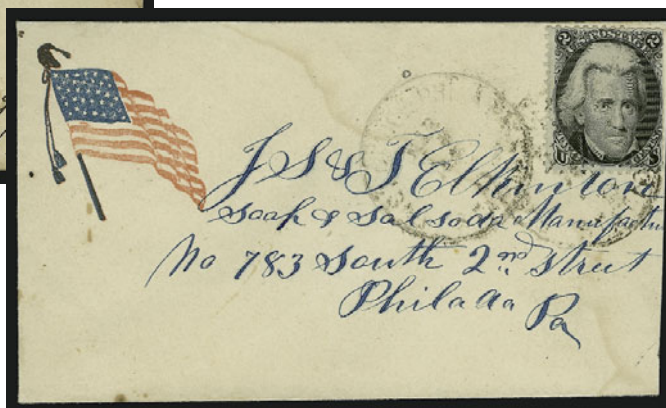 2 U.S. POSTAGE 2
U S
J S & T Elkinton
Soap & Sal soda Manufactu
No 783 South 2nd Street
Philada Pa